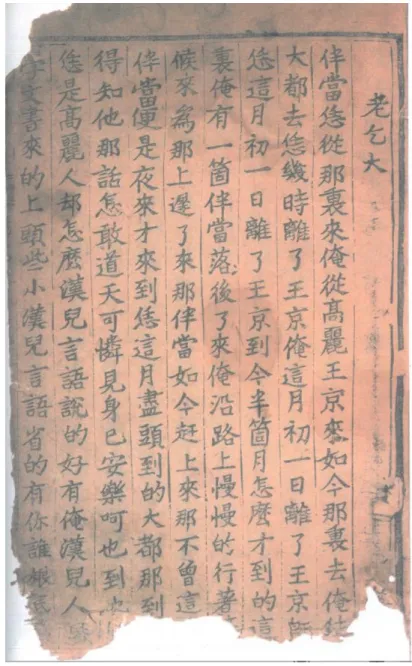 老乞大
伴當恁從那裏來俺從高麗王京來如今那裏去俺往
大都去恁幾時離了王京俺這月初一日離了王京既
恁這月初一日離了王京到今半箇月怎麽才到的這
裏俺有一箇伴當落後了來俺沿路上慢慢的行著
候來爲那上遲了來那伴當如今赶上來那不曾這
伴當便是夜來才來到恁這月盡頭到的大都那到
得知他那話怎敢道天可憐見身已安樂呵也到
恁是高麗人却怎麽漢兒言語說的好有俺漢兒人
字文書來的上頭些小漢兒言語省的有你誰根底